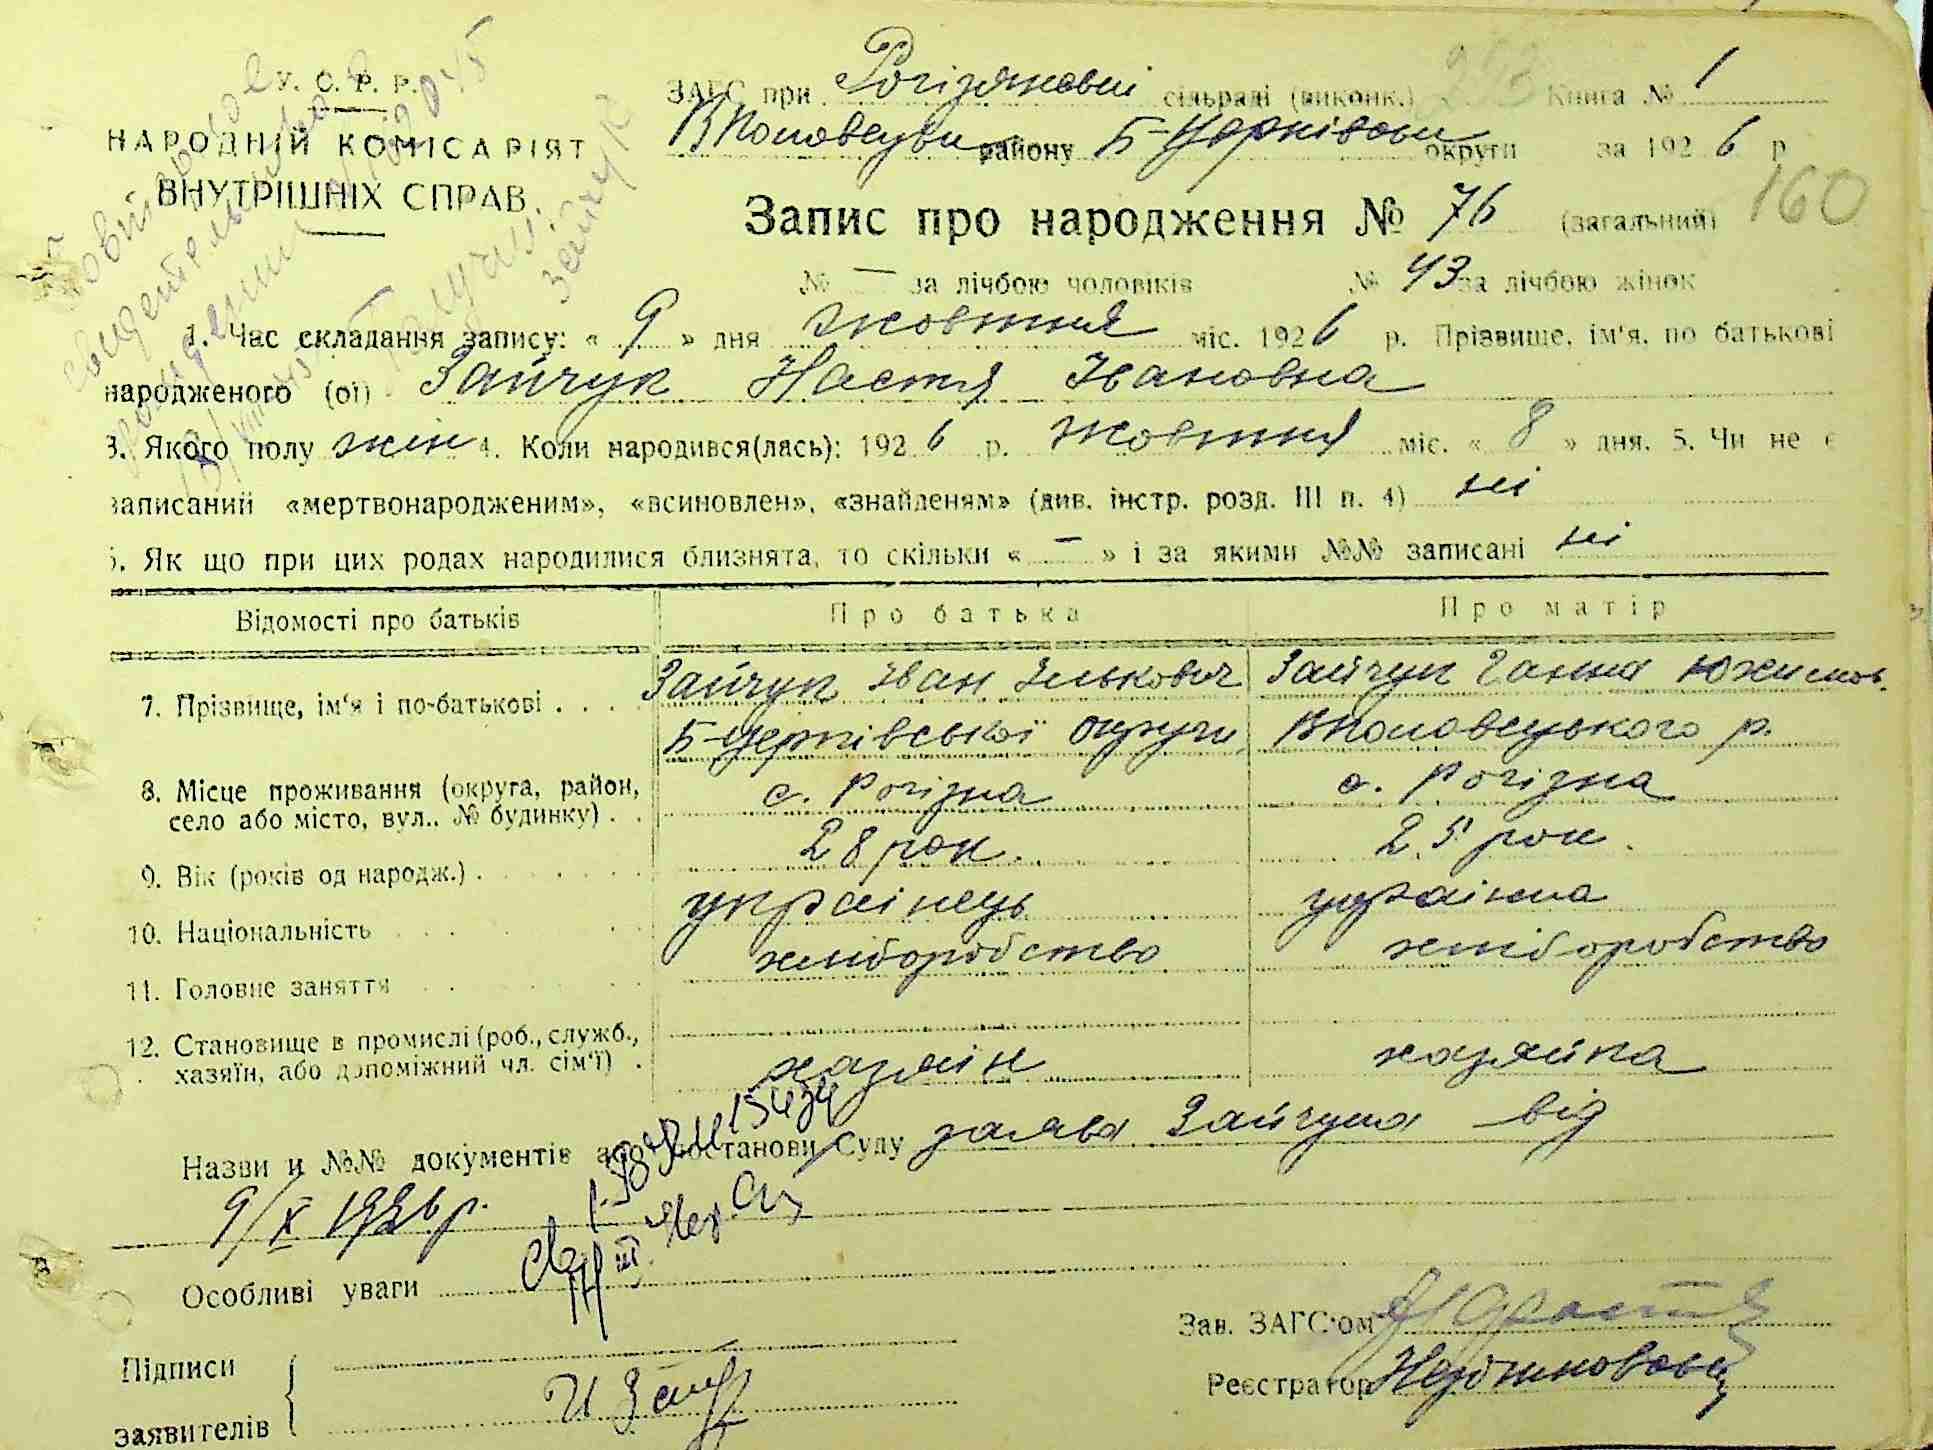 У. С. Р. Р.
НАРОДНІЙ КОМІСАРІЯТ
ВНУТРІШНІХ СПРАВ.
ЗАГС при сільраді (виконк.) 253 Книга № 1
району Б-Церківськ округи за 1926 р
160
Запис про народження № 76 (загальний)
№ — за лічбою чоловіків № 43 за лічбою жінок
1. Час складання запису: « 9 » дня жовтня міс. 1926 р. Прізвище, ім'я, по батькові
народженого (ої) Зайчук Настя Івановна
3. Якого полу жін 4. Коли народився(лась): 1926 р. жовтня міс. « 8 » дня. 5. Чи не є
записаний «мертвонародженим», «всиновлен», «знайденям» (див. інстр. розд. III п. 4) ні
6. Як що при цих родах народилися близнята, то скільки « — » і за якими №№ записані ні
Відомості про батьків Про батька Про матір
7. Прізвище, ім'я і по-батькові . . . . Зайчук Іван Ількович Зайчук Ганна Юхимов.
Б-Церківської округи ВПоловецького р.
8. Місце проживання (округа, район,
село або місто, вул., № будинку) . . с. Рогізна с. Рогізна
9. Вік (років од народж.) . 28 рок. 25 рок.
10. Національність українець українка
11. Головне заняття хліборобство хліборобство
12. Становище в промислі (роб., служб.,
хазяїн, або допоміжний чл. сім'ї) . хазяїн хазяйка
Назви и №№ документів або постанови Суду заява Зайчука від
9/X 1926 р.
Особливі уваги
Зав. ЗАГС'ом
Підписи
заявителів
И Зайч
Реєстратор